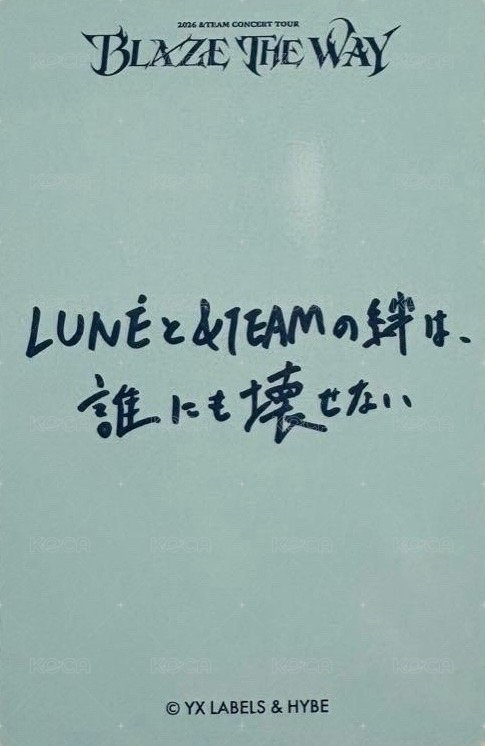 2026 &TEAM CONCERT TOUR
BLAZE THE WAY
LUNÉと&TEAMの絆は、
誰にも壊せない
© YX LABELS & HYBE
KOCA